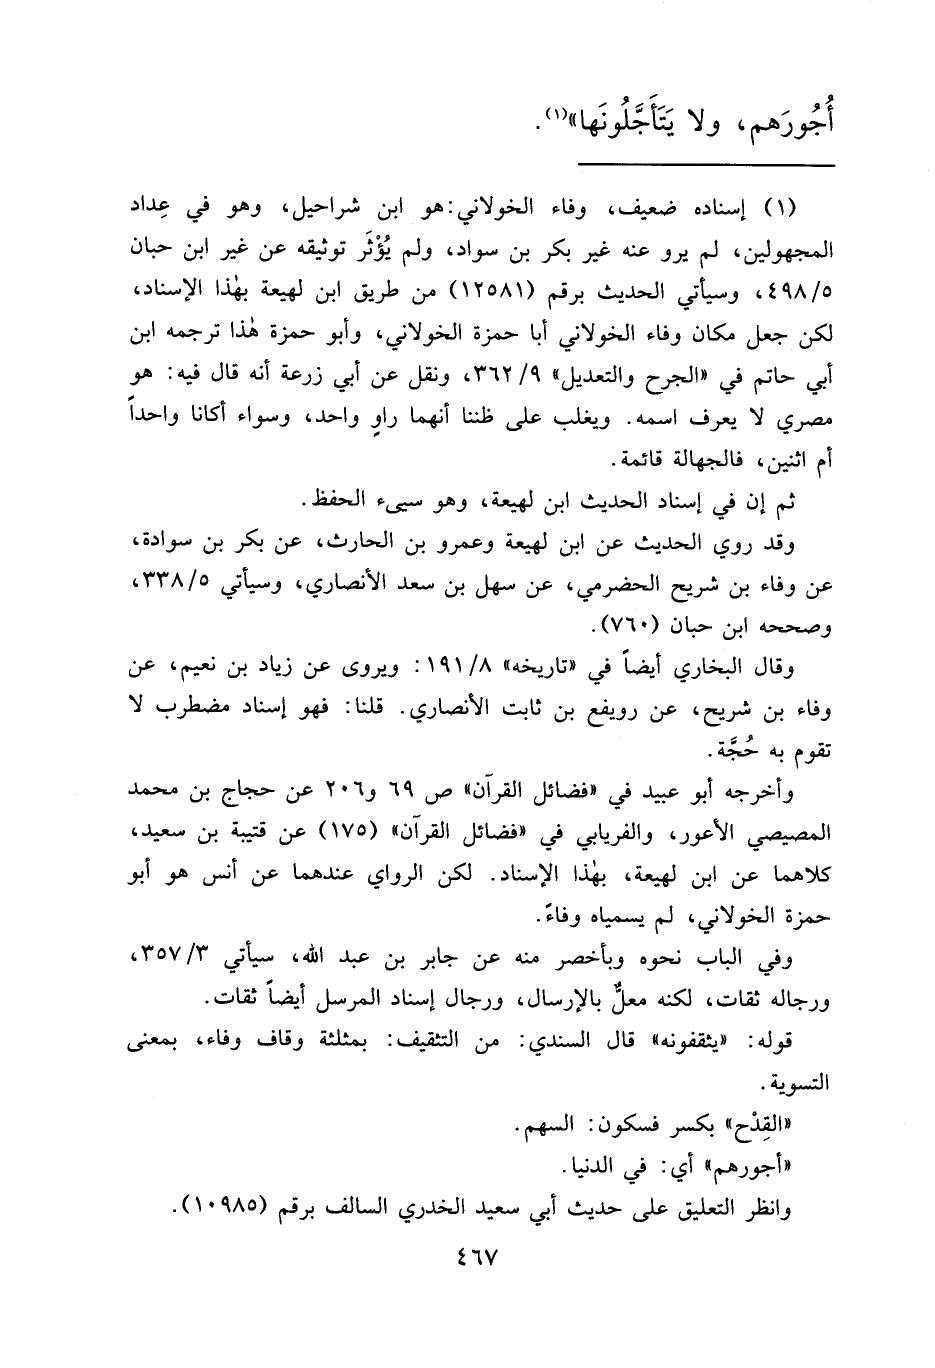 أُجُورَهم، ولا يَتَأَجَّلُونَها»(١).
(١) إسناده ضعيف، وفاء الخولاني:هو ابن شراحيل، وهو في عِداد
المجهولين، لم يرو عنه غير بكر بن سواد، ولم يُؤْثَر توثيقه عن غير ابن حبان
٤٩٨/٥، وسيأتي الحديث برقم (١٢٥٨١) من طريق ابن لهيعة بهٰذا الإسناد،
لكن جعل مكان وفاء الخولاني أبا حمزة الخولاني، وأبو حمزة هٰذا ترجمه ابن
أبي حاتم في «الجرح والتعديل» ٣٦٢/٩، ونقل عن أبي زرعة أنه قال فيه: هو
مصري لا يعرف اسمه. ويغلب على ظننا أنهما راوٍ واحد، وسواء أكانا واحداً
أم اثنين، فالجهالة قائمة.
ثم إن في إسناد الحديث ابن لهيعة، وهو سيىء الحفظ.
وقد روي الحديث عن ابن لهيعة وعمرو بن الحارث، عن بكر بن سوادة،
عن وفاء بن شريح الحضرمي، عن سهل بن سعد الأنصاري، وسيأتي ٣٣٨/٥،
وصححه ابن حبان (٧٦٠).
وقال البخاري أيضاً في «تاريخه» ١٩١/٨: ويروى عن زياد بن نعيم، عن
وفاء بن شريح، عن رويفع بن ثابت الأنصاري. قلنا: فهو إسناد مضطرب لا
تقوم به حُجَّة.
وأخرجه أبو عبيد في «فضائل القرآن» ص ٦٩ و٢٠٦ عن حجاج بن محمد
المصيصي الأعور، والفريابي في «فضائل القرآن» (١٧٥) عن قتيبة بن سعيد،
كلاهما عن ابن لهيعة، بهٰذا الإسناد. لكن الرواي عندهما عن أنس هو أبو
حمزة الخولاني، لم يسمياه وفاءً.
وفي الباب نحوه وبأخصر منه عن جابر بن عبد الله، سيأتي ٣٥٧/٣،
ورجاله ثقات، لكنه معلٌّ بالإرسال، ورجال إسناد المرسل أيضاً ثقات.
قوله: «يثقفونه» قال السندي: من التثقيف: بمثلثة وقاف وفاء، بمعنى
التسوية.
«القِدْح» بكسر فسكون: السهم.
«أجورهم» أي: في الدنيا.
وانظر التعليق على حديث أبي سعيد الخدري السالف برقم (١٠٩٨٥).
٤٦٧